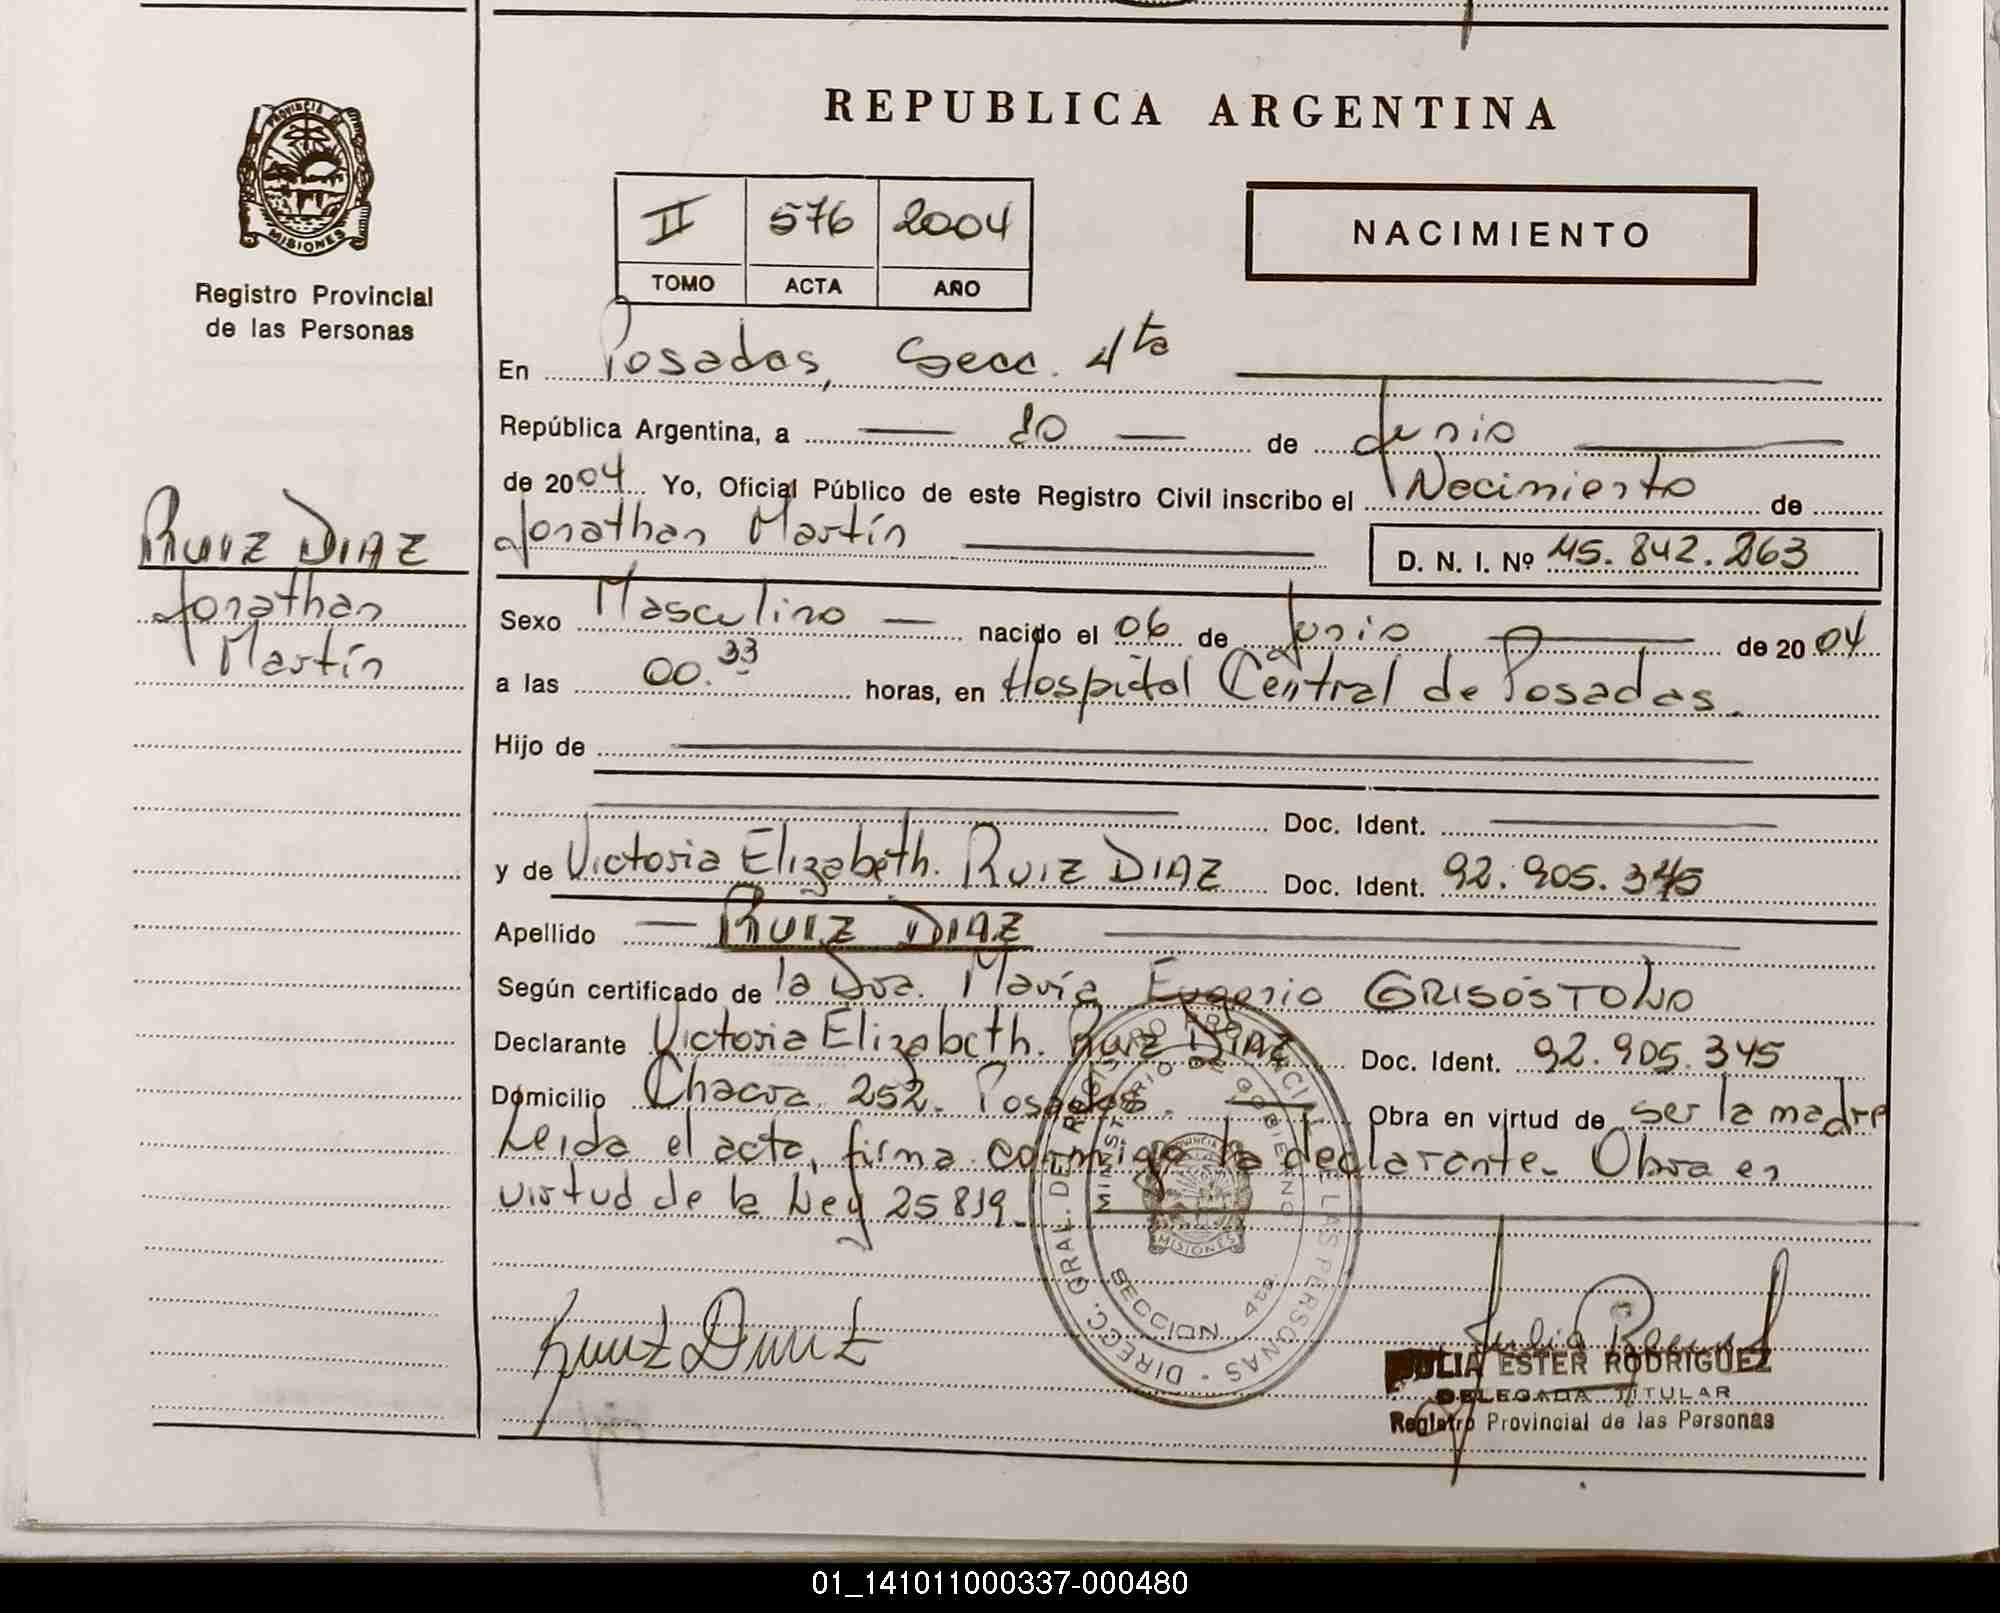 REPUBLICA ARGENTINA
PROVINCIA DE
MISIONES
Registro Provincial
de las Personas
II 576 2004
TOMO ACTA AÑO
NACIMIENTO
En Posadas, Secc. 4ta
República Argentina, a de Junio
de 2004 Yo, Oficial Público de este Registro Civil inscribo el Nacimiento de
Jonathan Martín
D. N. I. Nº 45.842.263
RUIZ DIAZ
Jonathan
Martín
Sexo Masculino nacido el 06 de Junio de 2004
a las 00.33 horas, en Hospital Central de Posadas.
Hijo de
Doc. Ident.
y de Victoria Elizabeth. RUIZ DIAZ Doc. Ident. 92.905.345
Apellido RUIZ DIAZ
Según certificado de la Dra. María Eugenia GRISÓSTOMO
Declarante Victoria Elizabeth. Ruiz DIAZ Doc. Ident. 92.905.345
Domicilio Chacra 252. Posadas. Obra en virtud de ser la madre
Leida el acta, firma conmigo la declarante. Obra en
virtud de la Ley 25819.
DIRECC. GRAL. DEL REGISTRO PROVINCIAL DE LAS PERSONAS
MINISTERIO DE GOBIERNO
PROVINCIA
MISIONES
SECCION 4ta.
JULIA ESTER RODRIGUEZ
DELEGADA TITULAR
Registro Provincial de las Personas
01_141011000337-000480